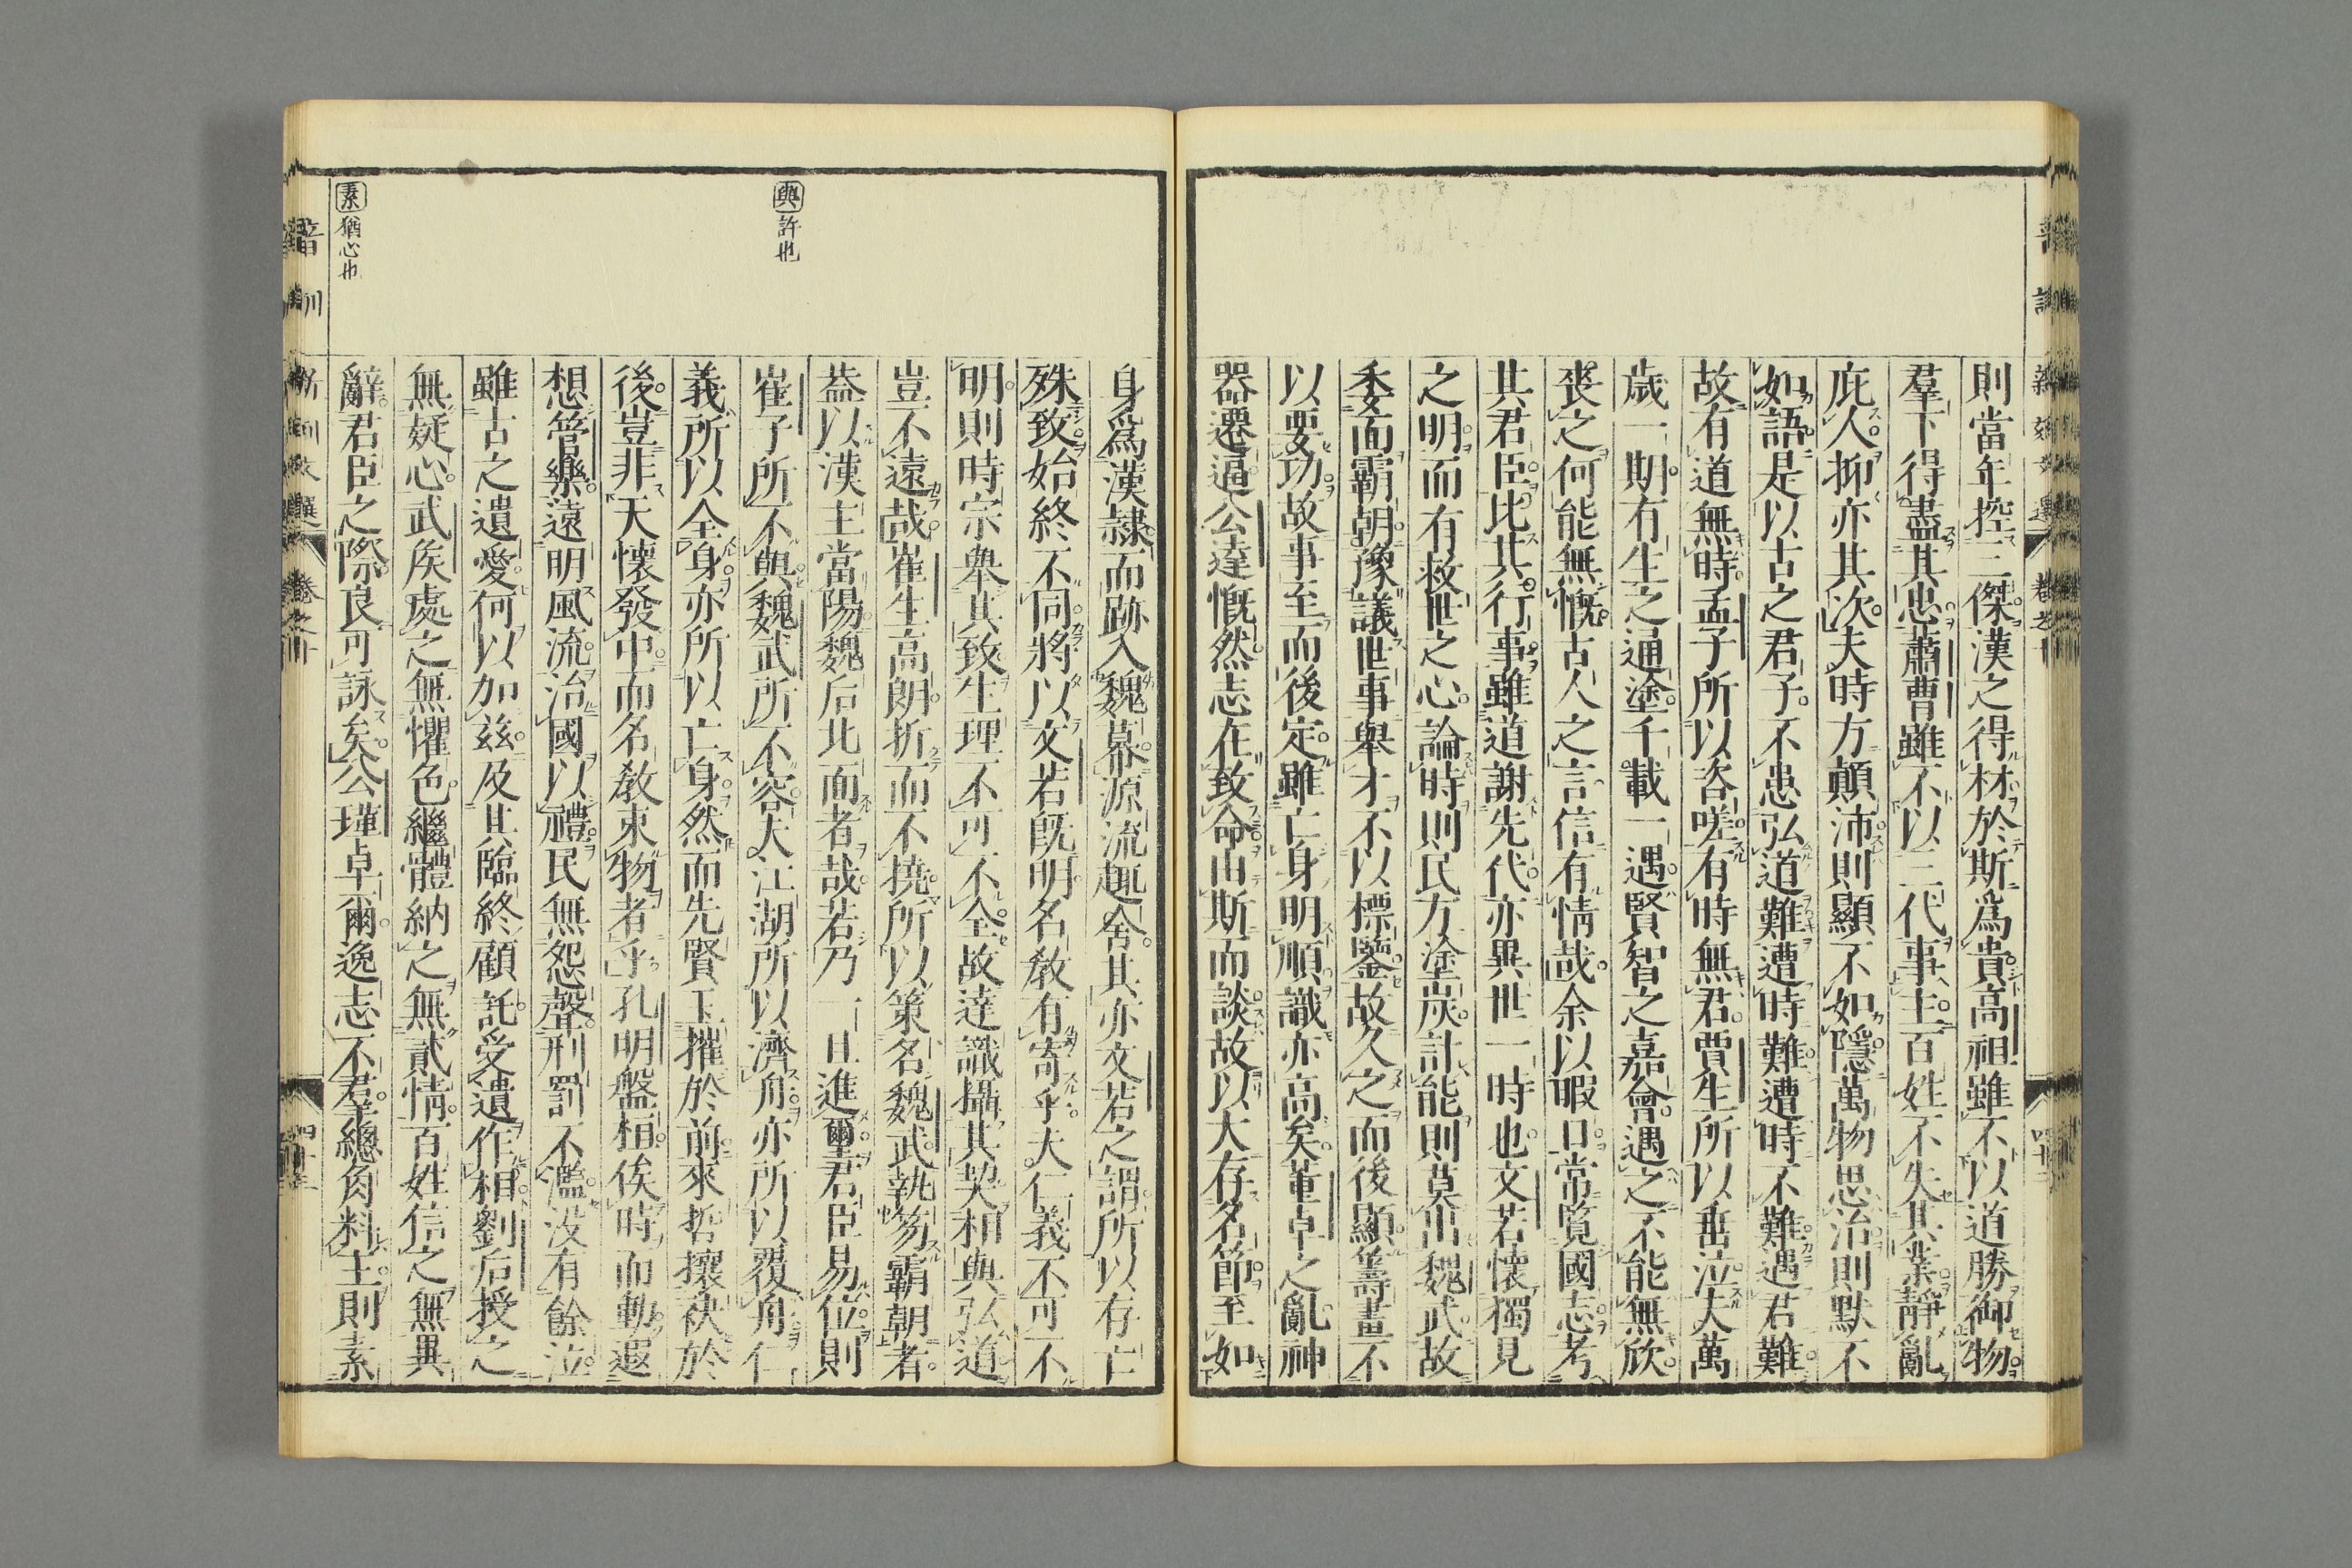 則當年控三傑漢之得林於斯爲貴高祖雖不以道勝御物
羣下得盡其忠蕭曹雖不以三代事主百姓不失其業靜亂
庇人抑亦其次夫時方顛沛則顯不如隱萬物思治則默不
如語是以古之君子不患弘道難遭時難遭時不難遇君難
故有道無時孟子所以咨嗟有時無君賈生所以垂泣夫萬
歲一期有生之通塗千載一遇賢智之嘉會遇之不能無欣
喪之何能無慨古人之言信有情哉余以暇日常覧國志考
其君臣比其行事雖道謝先代亦異世一時也文若懷獨見
之明而有救世之心論時則民方塗炭計能則莫出魏武故
委面霸朝豫議世事舉才不以標鑒故久之而後顯籌畫不
以要功故事至而後定雖亡身明順識亦高矣董卓之亂神
器遷逼公達慨然志在致命由斯而談故以大存名節至如
身爲漢隷而跡入魏幕源流趣舍其亦文若之謂所以存亡
殊致始終不同將以文若既明名教有寄乎夫仁義不可不
明則時宗舉其致生理不可不全故達識攝其契相與弘道
豈不遠哉崔生高朗折而不撓所以策名魏武執笏霸朝者
葢以漢主當陽魏后北面者哉若乃一旦進璽君臣易位則
崔子所不與魏武所不容夫江湖所以濟舟亦所以覆舟仁
義所以全身亦所以亡身然而先賢玉摧於前來哲攘袂於
後豈非天懷發中而名教束物者乎孔明盤桓俟時而動遐
想管樂遠明風流治國以禮民無怨聲刑罰不濫沒有餘泣
雖古之遺愛何以加兹及其臨終顧託受遺作相劉后授之
無疑心武矦處之無懼色繼體納之無貳情百姓信之無異
辭君臣之際良可詠矣公瑾卓爾逸志不羣總角料主則素
與 許也
素 猶心也